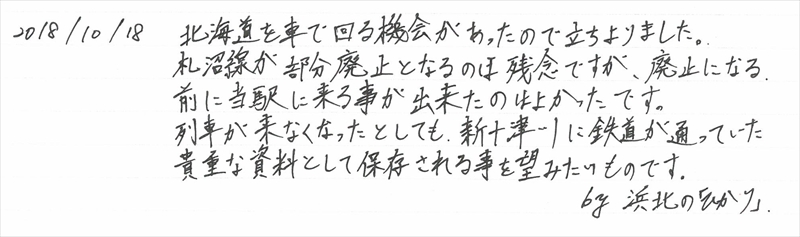 2018/10/18 北海道を車で回る機会があったので立ちよりました。
札沼線が部分廃止となるのは残念ですが、廃止になる
前に当駅に来る事が出来たのはよかったです。
列車が来なくなったとしても、新十津川に鉄道が通っていた
貴重な資料として保存される事を望みたいものです。
by 浜北の「ひかり」.